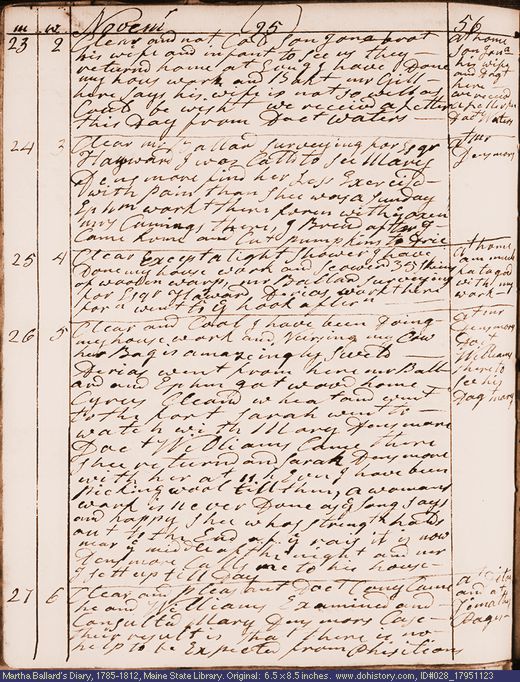 m w Novem 1795 56
23 2 Clear and not Cold. Son Jona brot
his wife and infant to see us they
returnd home at Evng I have Done
my hous work and Bakt. mr Gill
here says his wife is not so well as
Could be wisht we receivd a letter
this Day from Doct Waters
at home
Son Jona
his wife
and Dagt
here
we receivd
a letter from
Doct Waters
24 3 Clear mr Ballard Surveying for Esqr
Hayward. I was Calld to See Mary
Densmore find her less Exercisd
with pain than shee was a Sunday
Ephm workt there
mrs Cummings there, I Bread after I
Came home and Cut pumpkins to Drie
at mr
Densmors
25 4 Clear Except a light Shower. I have
Done my house work and Scowrd 35 skins
of woolen warp, mr Ballard Surveying
for Esqr Haward. Dorias workt there
for a went to y hook afternn
at home
am much
fatagud
with my
work
26 5 Clear and Cool. I have been Doing
my house work and Nursing my Cow
her Bag is amazeingly Sweld
Dorias went from here. mr Ball
ard and Ephm got wood home
Cyrus Cleand wheat and went
to the fort. Sarah went to
watch with Mary Densmore
Doct Williams Came there
shee returnd and Sarah Densmore
with her at 11 h Evn. I have been
Picking wool till then, a womans
work is never Done as y Song Says
and happy Shee whos strength holds
out to the End of y rais. it is now
near y middle of the night and mr
Densmore Calls me to his house
I sett up till Day
at mr
Densmors
Doct
Williams
there to
see his
Dag mary
27 6 Clear and pleasant Doct Cony Came
he and Williams Examined and
Consulted Mary Densmors Case
their result is that there is no
help to be Expected from Phisitions
at ditoes
and at
Pages
Martha Ballard's Diary, 1785-1812, Maine State Library. Original: 6.5 x 8.5 inches. www.dohistory.com, ID#028_17951123